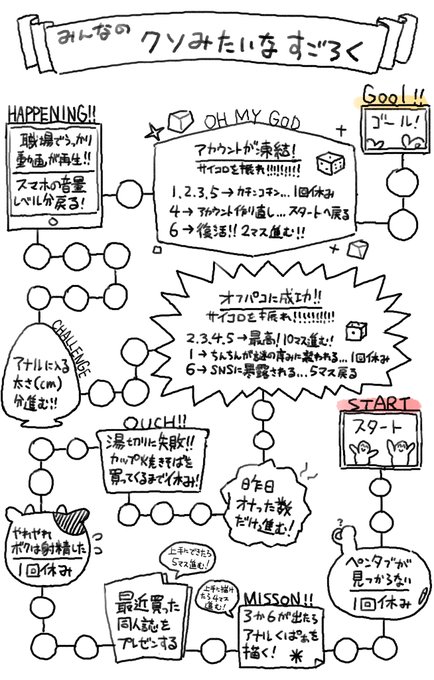 みんなの クソみたいな すごろく
HAPPENING!!
職場でうっかり
動画が再生!!
スマホの音量
レベル分戻る!
OH MY GOD
アカウントが凍結!
サイコロを振れ!!!!!!!!!
1,2,3,5→カチンコチン…1回休み
4→アカウント作り直し…スタートへ戻る
6→復活!!2マス進む!!
Gool!!
ゴール!
CHALLENGE
アナルに入る
太さ(cm)
分進む!!
オフパコに成功!!
サイコロを振れ!!!!!!!!!!
2,3,4,5→最高!10マス進む!
1→ちんちんが謎の痒みに襲われる…1回休み
6→SNSに暴露される…5マス戻る
START
スタート
OUCH!!
湯切りに失敗!!
カップ焼きそばを
買ってくるまで休み!
昨日
オナった数
だけ進む!
やれやれ
ボクは射精した
1回休み
ペンタブが
見つからない
1回休み
上手にできたら
5マス進む!
最近買った
同人誌を
プレゼンする
上手に描け
たら4マス
進む!
MISSON!!
3か6が出たら
アナルくぱぁを
描く!